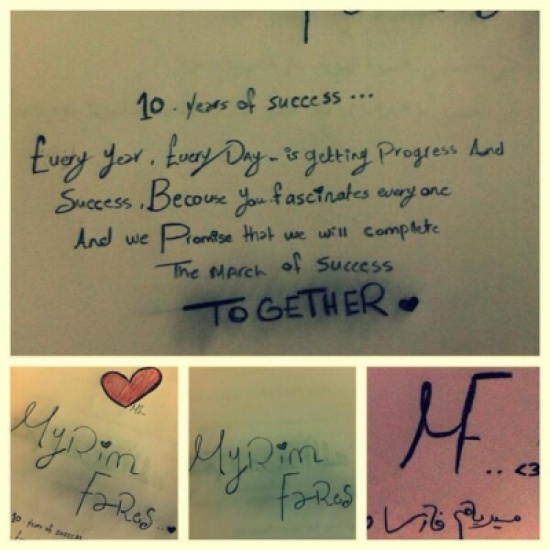 10 . years of success ...
Every Year , Every Day - is getting Progress And
Success , Becouse You fascinates every one
And we Promise that we will complete
The March of Success
TOGETHER ♥
Myriam
Fares ..♥
10 years of success
Myriam
Fares
MF
..<3
ميريام فارس